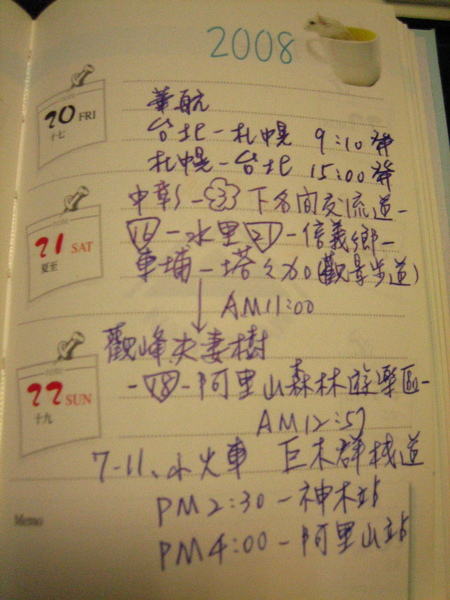 2008
20 FRI
十七
華航
台北-札幌 9:10發
札幌-台北 15:00發
21 SAT
夏至
中彰-③下名間交流道-
16-水里21-信義鄉-
東埔-塔塔加(觀景步道)
AM11:00
22 SUN
十九
觀峰夫妻樹
-18-阿里山森林遊樂區-
AM12:57
7-11、小火車 巨木群棧道
PM2:30-神木站
PM4:00-阿里山站
Memo